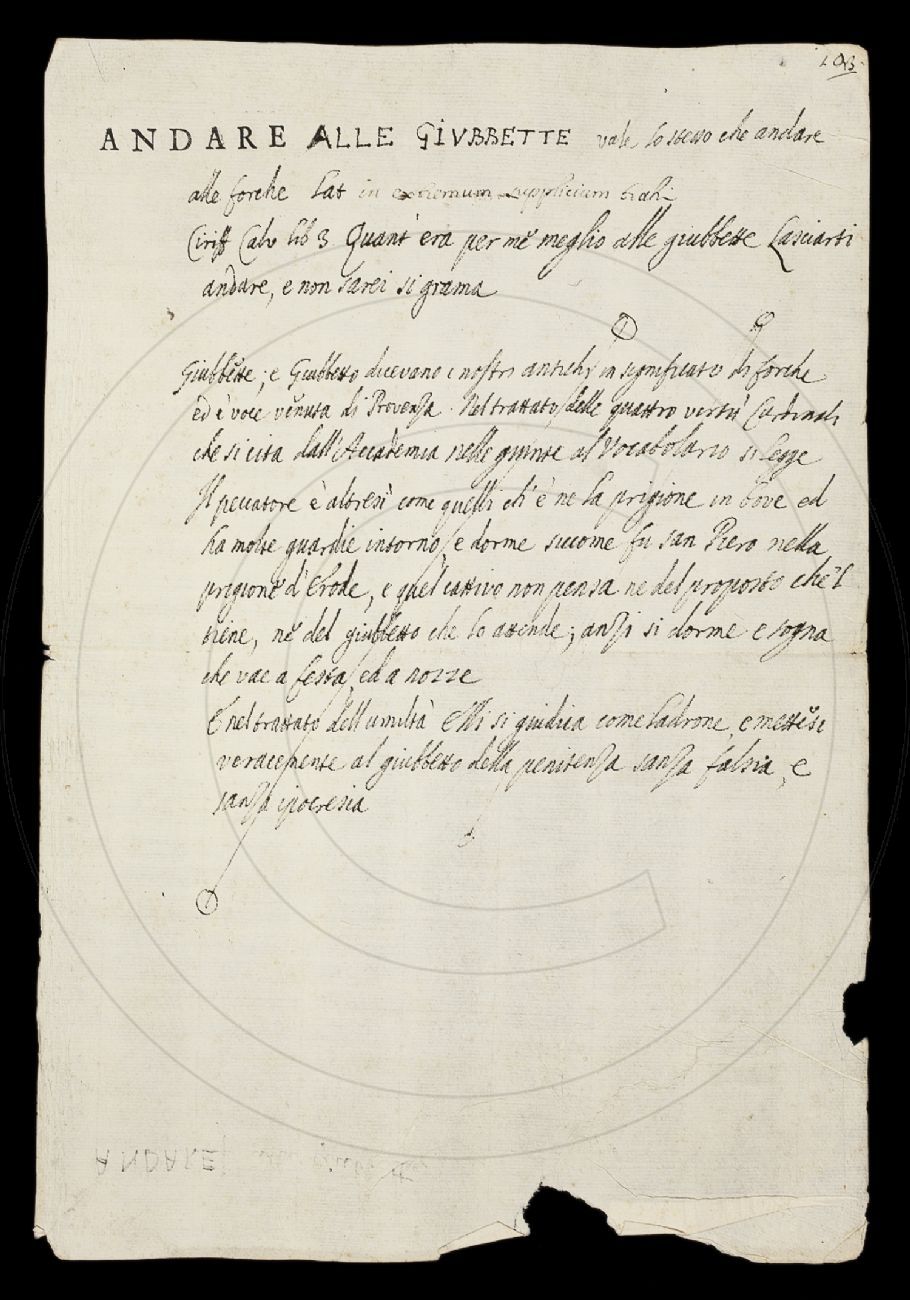 103
ANDARE ALLE GIVBBETTE vale lo stesso che andare
alle forche Lat in extremum supplicium trahi
Ciriff Calv lib 3 Quant era per mè meglio alle giubbette Lasciarti
andare, e non sarei si grama
Giubbette, e Giubbetto dicevano i nostri antichi in significato di forche
ed è voce venuta di Provenza. Nel trattato delle quattro vertù Cardinali
che si cita dall'Accademia nelle giunte al Vocabolario si legge
Il peccatore è altresì come quelli ch'è ne la prigione in bove ed
ha molte guardie intorno, e dorme siccome fu san Piero nella
prigione d'Erode, e quel cattivo non pensa ne del proposto che'l
tiene, nè del giubbetto che lo attende; anzi si dorme e sogna
che vae a festa, ed a nozze
E nel trattato dell'umiltà Elli si giudica come ladrone, e mettesi
veracemente al giubbetto della penitenza sanza falsia, e
sanza ipocresia
ANDARE